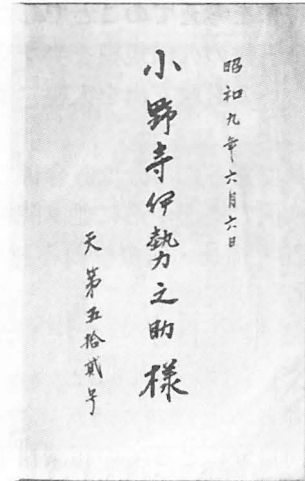 昭和九年六月六日
小野寺伊勢之助様
天第五拾貳号